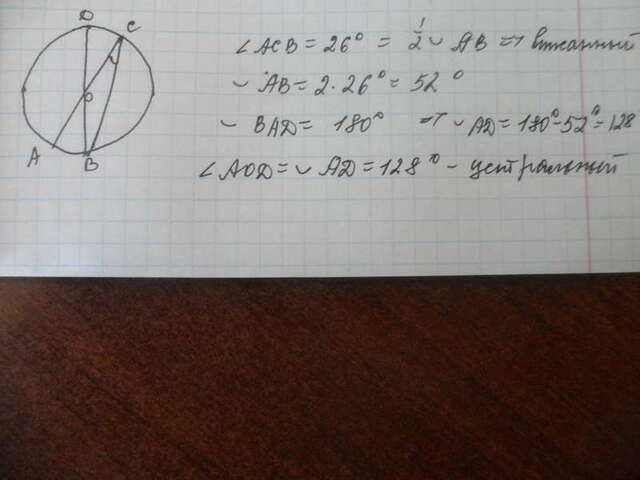 D
C
O
A
B
∠ACB = 26° = 1/2 ◡ AB ⇒ вписанный
◡ AB = 2·26° = 52°
◡ BAD = 180° ⇒ ◡ AD = 180°-52°=128
∠AOD = ◡ AD = 128° - центральный